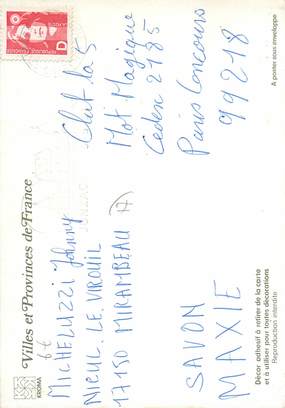 Villes et Provinces de France
KROMA
MICHELUZZI Johnny
NIEUL. LE. VIROUIL
17150 MIRAMBEAU (17)
SAVON
MAXIE
Club. La 5
Mot Magique
Cedex 2785
Paris Concours
99218
D
REPUBLIQUE FRANÇAISE
LA POSTE
Décor adhésif à retirer de la carte
et à utiliser pour toutes décorations
Reproduction interdite
A poster sous enveloppe